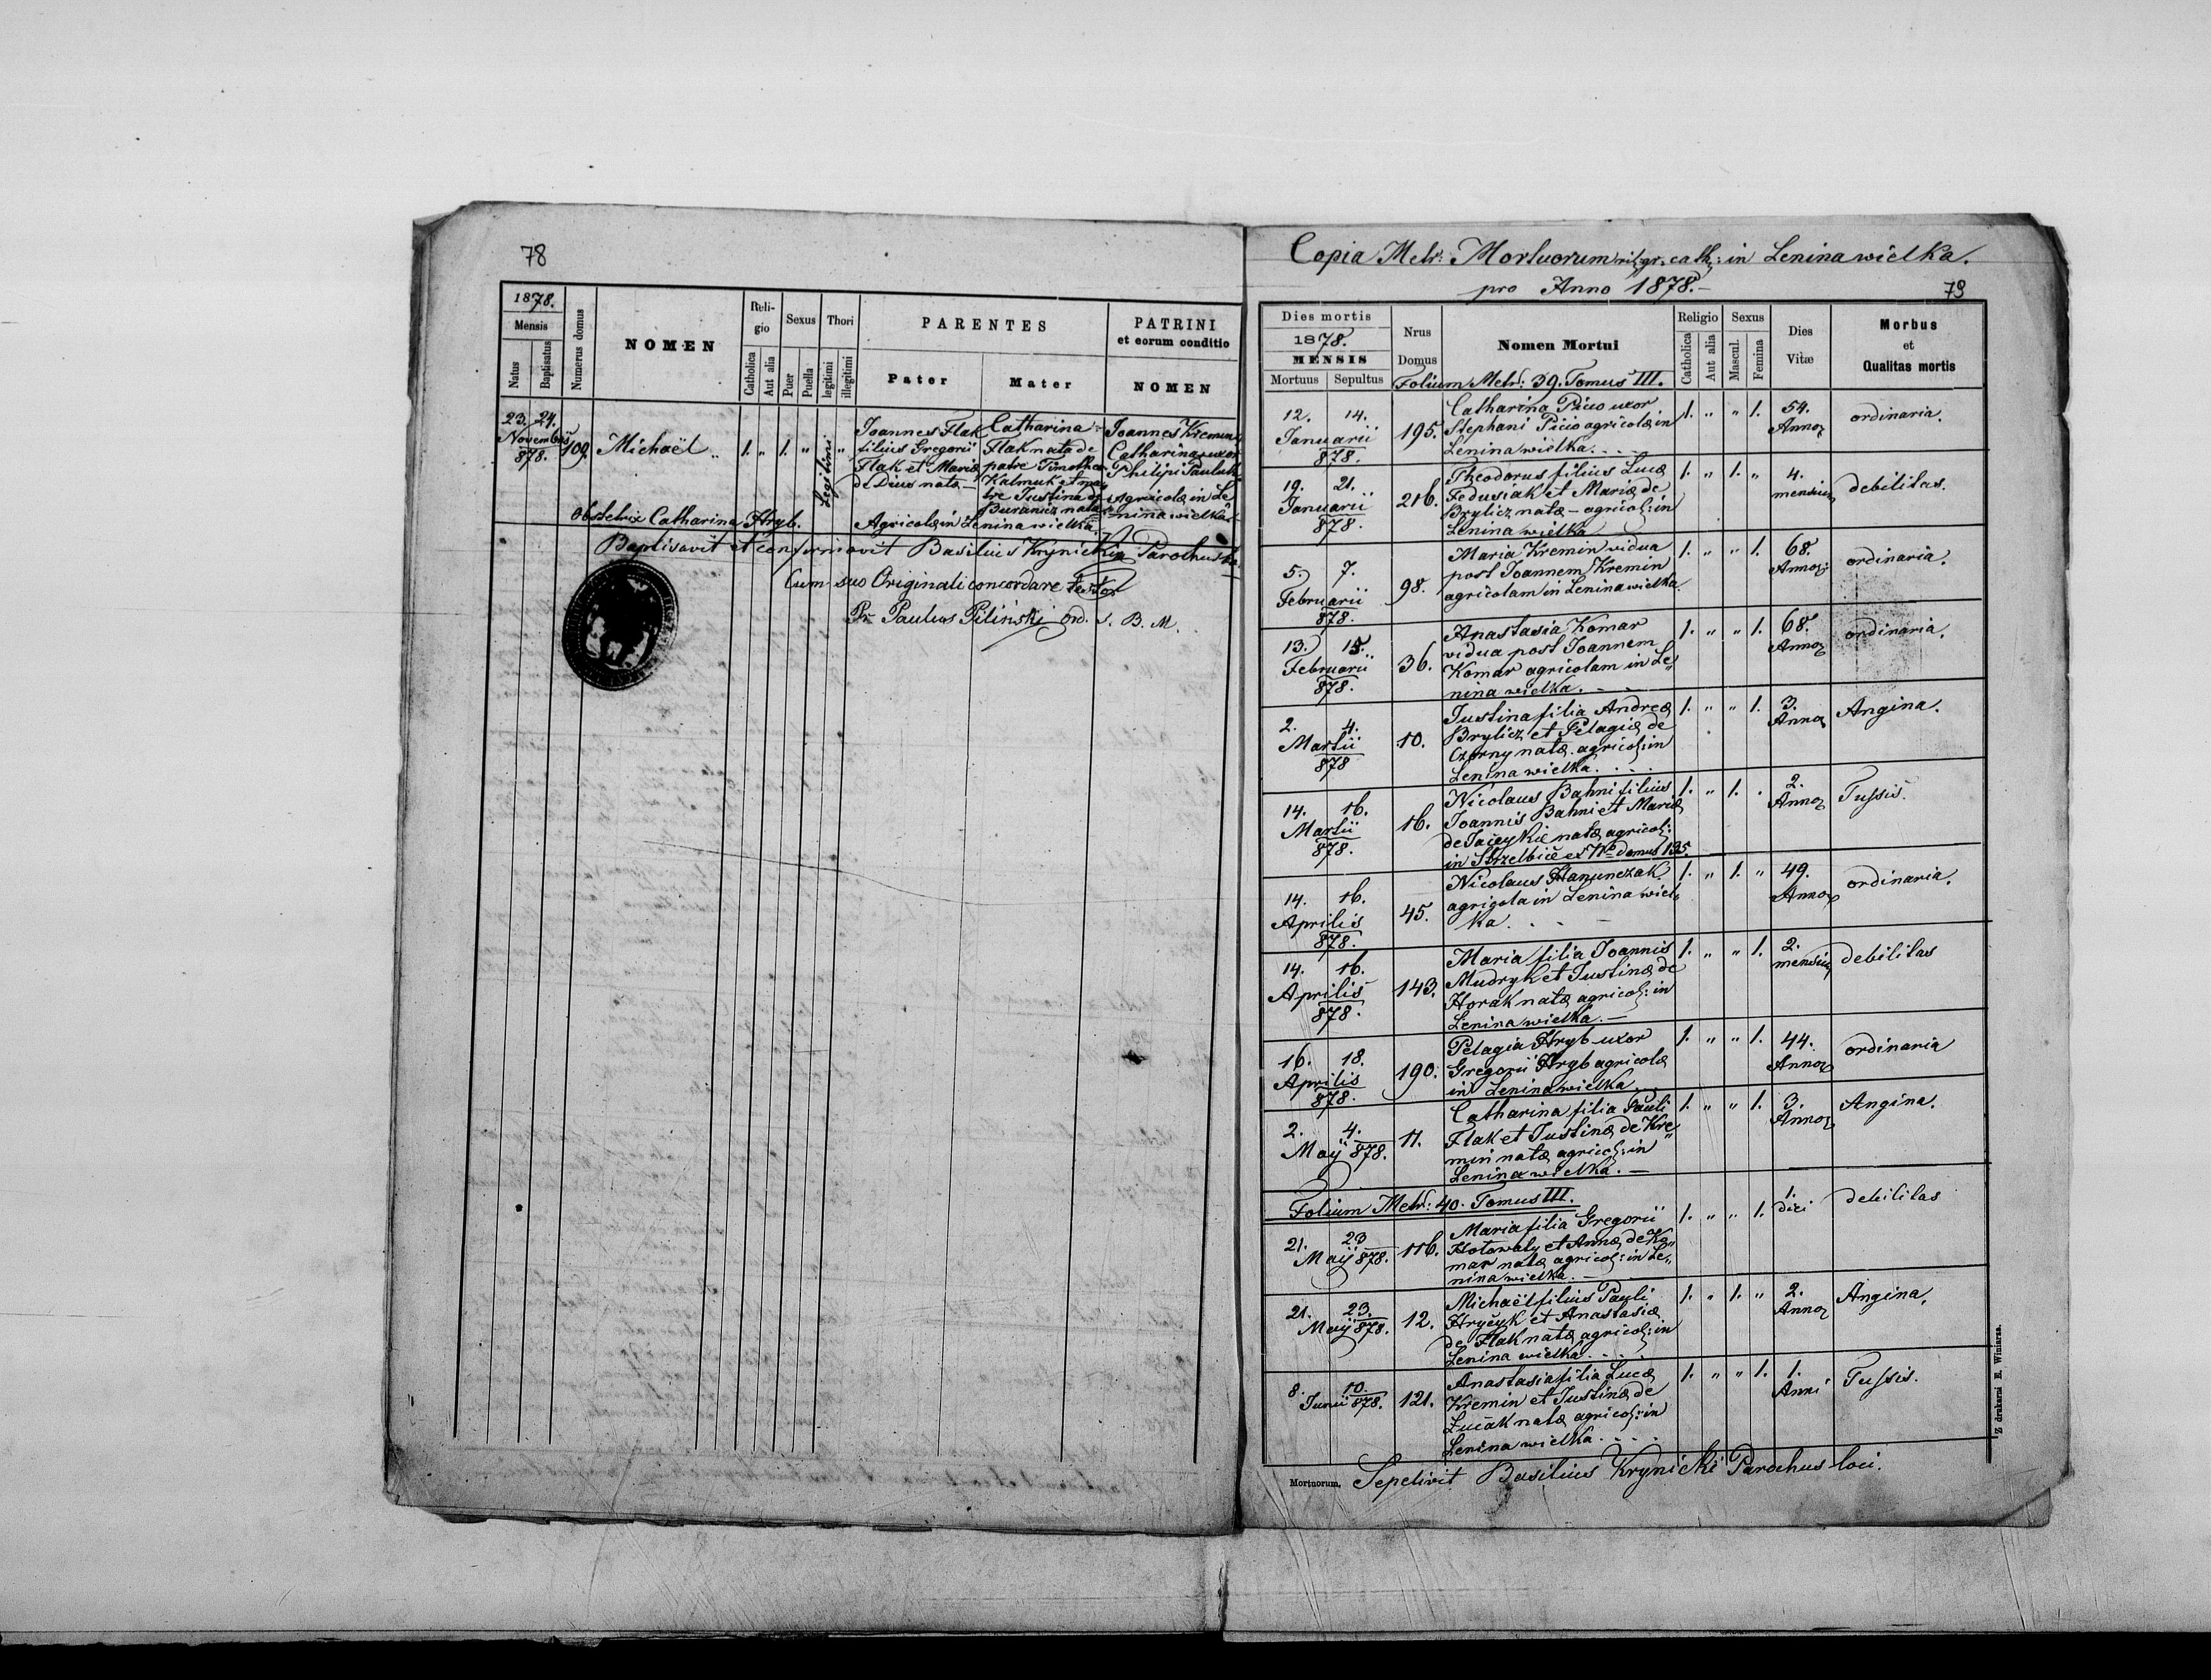 78
1878.
Mensis
Natus
Baptisatus
Numerus domus
NOMEN
Reli-
gio
Catholica
Aut alia
Sexus
Puer
Puella
Thori
legitimi
illegitimi
PARENTES
Pater
Mater
PATRINI
et eorum conditio
NOMEN
23. 24.
Novembris
878.
109.
Michaël
1. „ 1. „
Legitimi
„
Joannes Flak
filius Gregorii
Flak et Mariæ
de Dius natæ —
Agricolæ in Lenina wielka
Catharina
Flak nata de
patre Timotheo
Kalmuk et ma
tre Justina de
Buranicz nata
Joannes Kremin
Catharina uxor
Philipi Pauluk
Agricolæ in Le
nina wielka
Obstetrix Catharina Hryb.
Baptisavit et confirmavit Basilius Krynicki Parochus
Cum suo Originali concordare testor
Pr. Paulus Piliński ord. S. B. M.
Copia Metr: Mortuorum rit. gr. cath: in Lenina wielka.
pro Anno 1878.—
79
Dies mortis
1878.
MENSIS
Mortuus Sepultus
Nrus
Domus
Nomen Mortui
Religio
Catholica
Aut alia
Sexus
Mascul.
Femina
Dies
Vitæ
Morbus
et
Qualitas mortis
Folium Metr: 39. Tomus III.
12. 14.
Januarii
878.
195.
Catharina Picio uxor
Stephani Picio agricolæ in
Lenina wielka.
1. „ „ 1.
54.
Annor
ordinaria.
19. 21.
Januarii
878.
216.
Theodorus filius Lucæ
Fedusiak et Mariæ de
Brylicz natæ — agricol: in
Lenina wielka
1. „ 1. „
4.
mensium
debilitas.
5. 7.
Februarii
878.
98.
Maria Kremin vidua
post Joannem Kremin
agricolam in Lenina wielka
1. „ „ 1.
68.
Annor
ordinaria.
13. 15.
Februarii
878.
36.
Anastasia Komar
vidua post Joannem
Komar agricolam in Le„
nina wielka.
1. „ „ 1.
68.
Annor
ordinaria.
2. 4.
Martii
878
10.
Justina filia Andreæ
Brylicz et Pelagiæ de
Czorny natæ agricol: in
Lenina wielka.
1. „ „ 1.
3.
Annor
Angina.
14. 16.
Martii
878.
16.
Nicolaus Bahni filius
Joannis Bahni et Mariæ
de natæ agricol:
in Strzelbice ex Nro domus 135.
1. „ 1.
2.
Annor
Tussis.
14. 16.
Aprilis
878.
45.
Nicolaus Hanunczak
agricola in Lenina wiel„
ka.
1. „ 1. „
49.
Annor
ordinaria.
14. 16.
Aprilis
878.
143.
Maria filia Joannis
Mudryk et Justinæ de
Horak natæ agricol: in
Lenina wielka.—
1. „ „ 1.
2.
mensium
debilitas
16. 18.
Aprilis
878.
190.
Pelagia Hryb uxor
Gregorii Hryb agricolæ
in Lenina wielka
1. „ „ 1.
44.
Annor
ordinaria
2. 4.
Maij 878.
11.
Catharina filia Pauli
Flak et Justinæ de Kre„
min natæ agricol: in
Lenina wielka.—
1. „ „ 1.
3.
Annor
Angina.
Folium Metr: 40. Tomus III.
21. 23
Maij 878.
116.
Maria filia Gregorii
Hotowaty et Annæ de Ko„
mar natæ agricol: in Le„
nina wielka.
1. „ „ 1.
1.
diei
debilitas
21. 23.
Maij 878.
12.
Michaël filius Pauli
Hryćyk et Anastasiæ
de Flak natæ agricol: in
Lenina wielka.
1. „ 1. „
2.
Annor
Angina.
8. 10.
Junii 878.
121.
Anastasia filia Lucæ
Kremin et Justinæ de
Łucak natæ agricol: in
Lenina wielka.
1. „ „ 1.
1.
Anni
Tussis.
Mortuorum. Sepelivit Basilius Krynicki Parochus loci.
Z drukarni E. Winiarza.